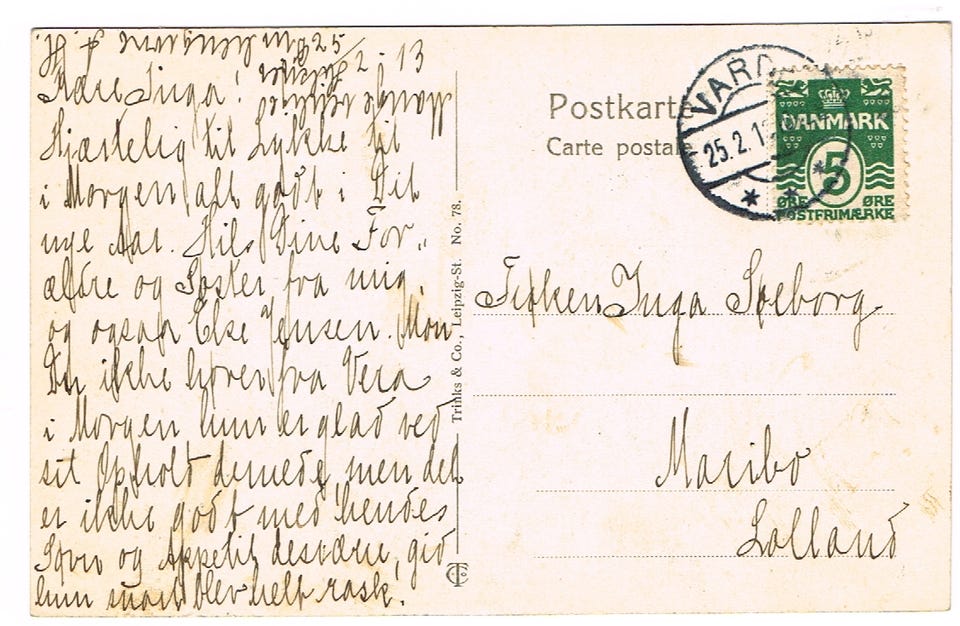 25/2 13
Kære Inga!
Hjærtelig til Lykke til
i Morgen alt godt i Dit
nye Aar. Hils Dine For„
ældre og Søster fra mig,
og ogsaa Else Jensen. Mon
Du ikke hører fra Vera
i Morgen hun er glad ved
sit Ophold dernede, men det
er ikke godt med hendes
Søvn og Appetit desværre, gid
hun snart blev helt rask.
Mange
Trinks & Co., Leipzig-St. No. 78.
Postkarte
Carte postale
VARD
25.2.1
DANMARK
5
ØRE ØRE
POSTFRIMÆRKE
Frøken Inga Søeborg
Maribo
Lolland